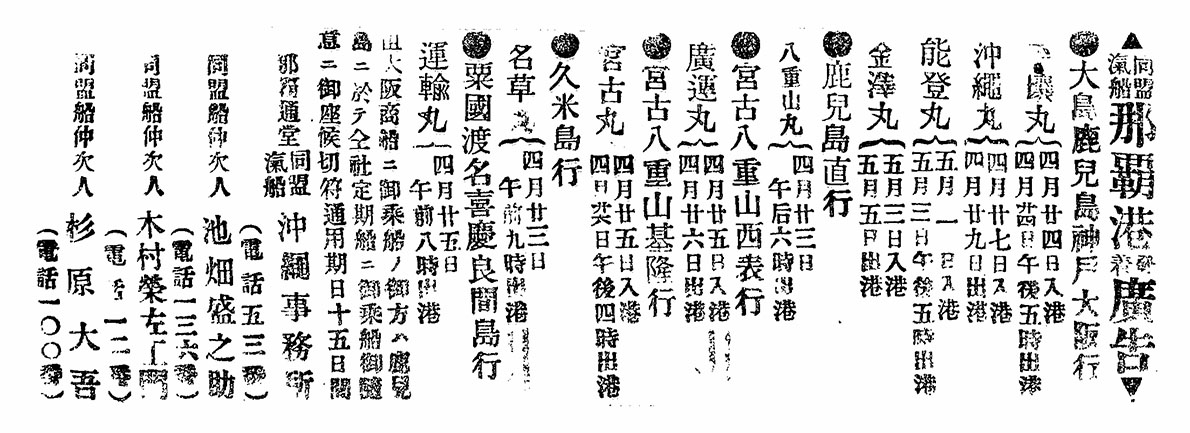 ▲同盟汽船那覇港發着廣告▼
●大島鹿兒島神戸大阪行
丸 四月廿四日入港
四月廿四日午後五時出港
沖繩丸 四月廿七日入港
四月廿九日出港
能登丸 五月一日入港
五月三日午後五時出港
金澤丸 五月三日入港
五月五日出港
●鹿兒島直行
八重山丸 四月廿三日
午后六時出港
●宮古八重山西表行
廣運丸 四月廿五日入港
四月廿六日出港
●宮古八重山基隆行
宮古丸 四月廿五日入港
四月廿六日午後四時出港
●久米島行
名草丸 四月廿三日
午前九時出港
●粟國渡名喜慶良間島行
運輸丸 四月廿五日
午前八時出港
大阪商船ニ御乘船ノ御方ハ鹿兒
島ニ於テ仝社定期船ニ御乘船御隨
意ニ御座候切符通用期日十五日間
那覇通堂 同盟汽船 沖繩事務所
(電話五三番)
同盟船仲次人 池畑盛之助
(電話一三六番)
同盟船仲次人 木村榮左工門
(電話一二番)
同盟船仲次人 杉原大吾
(電話一〇〇番)